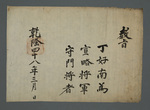 教旨
丁好南爲
宣略將軍
守門將者
乾隆四十八年三月 日